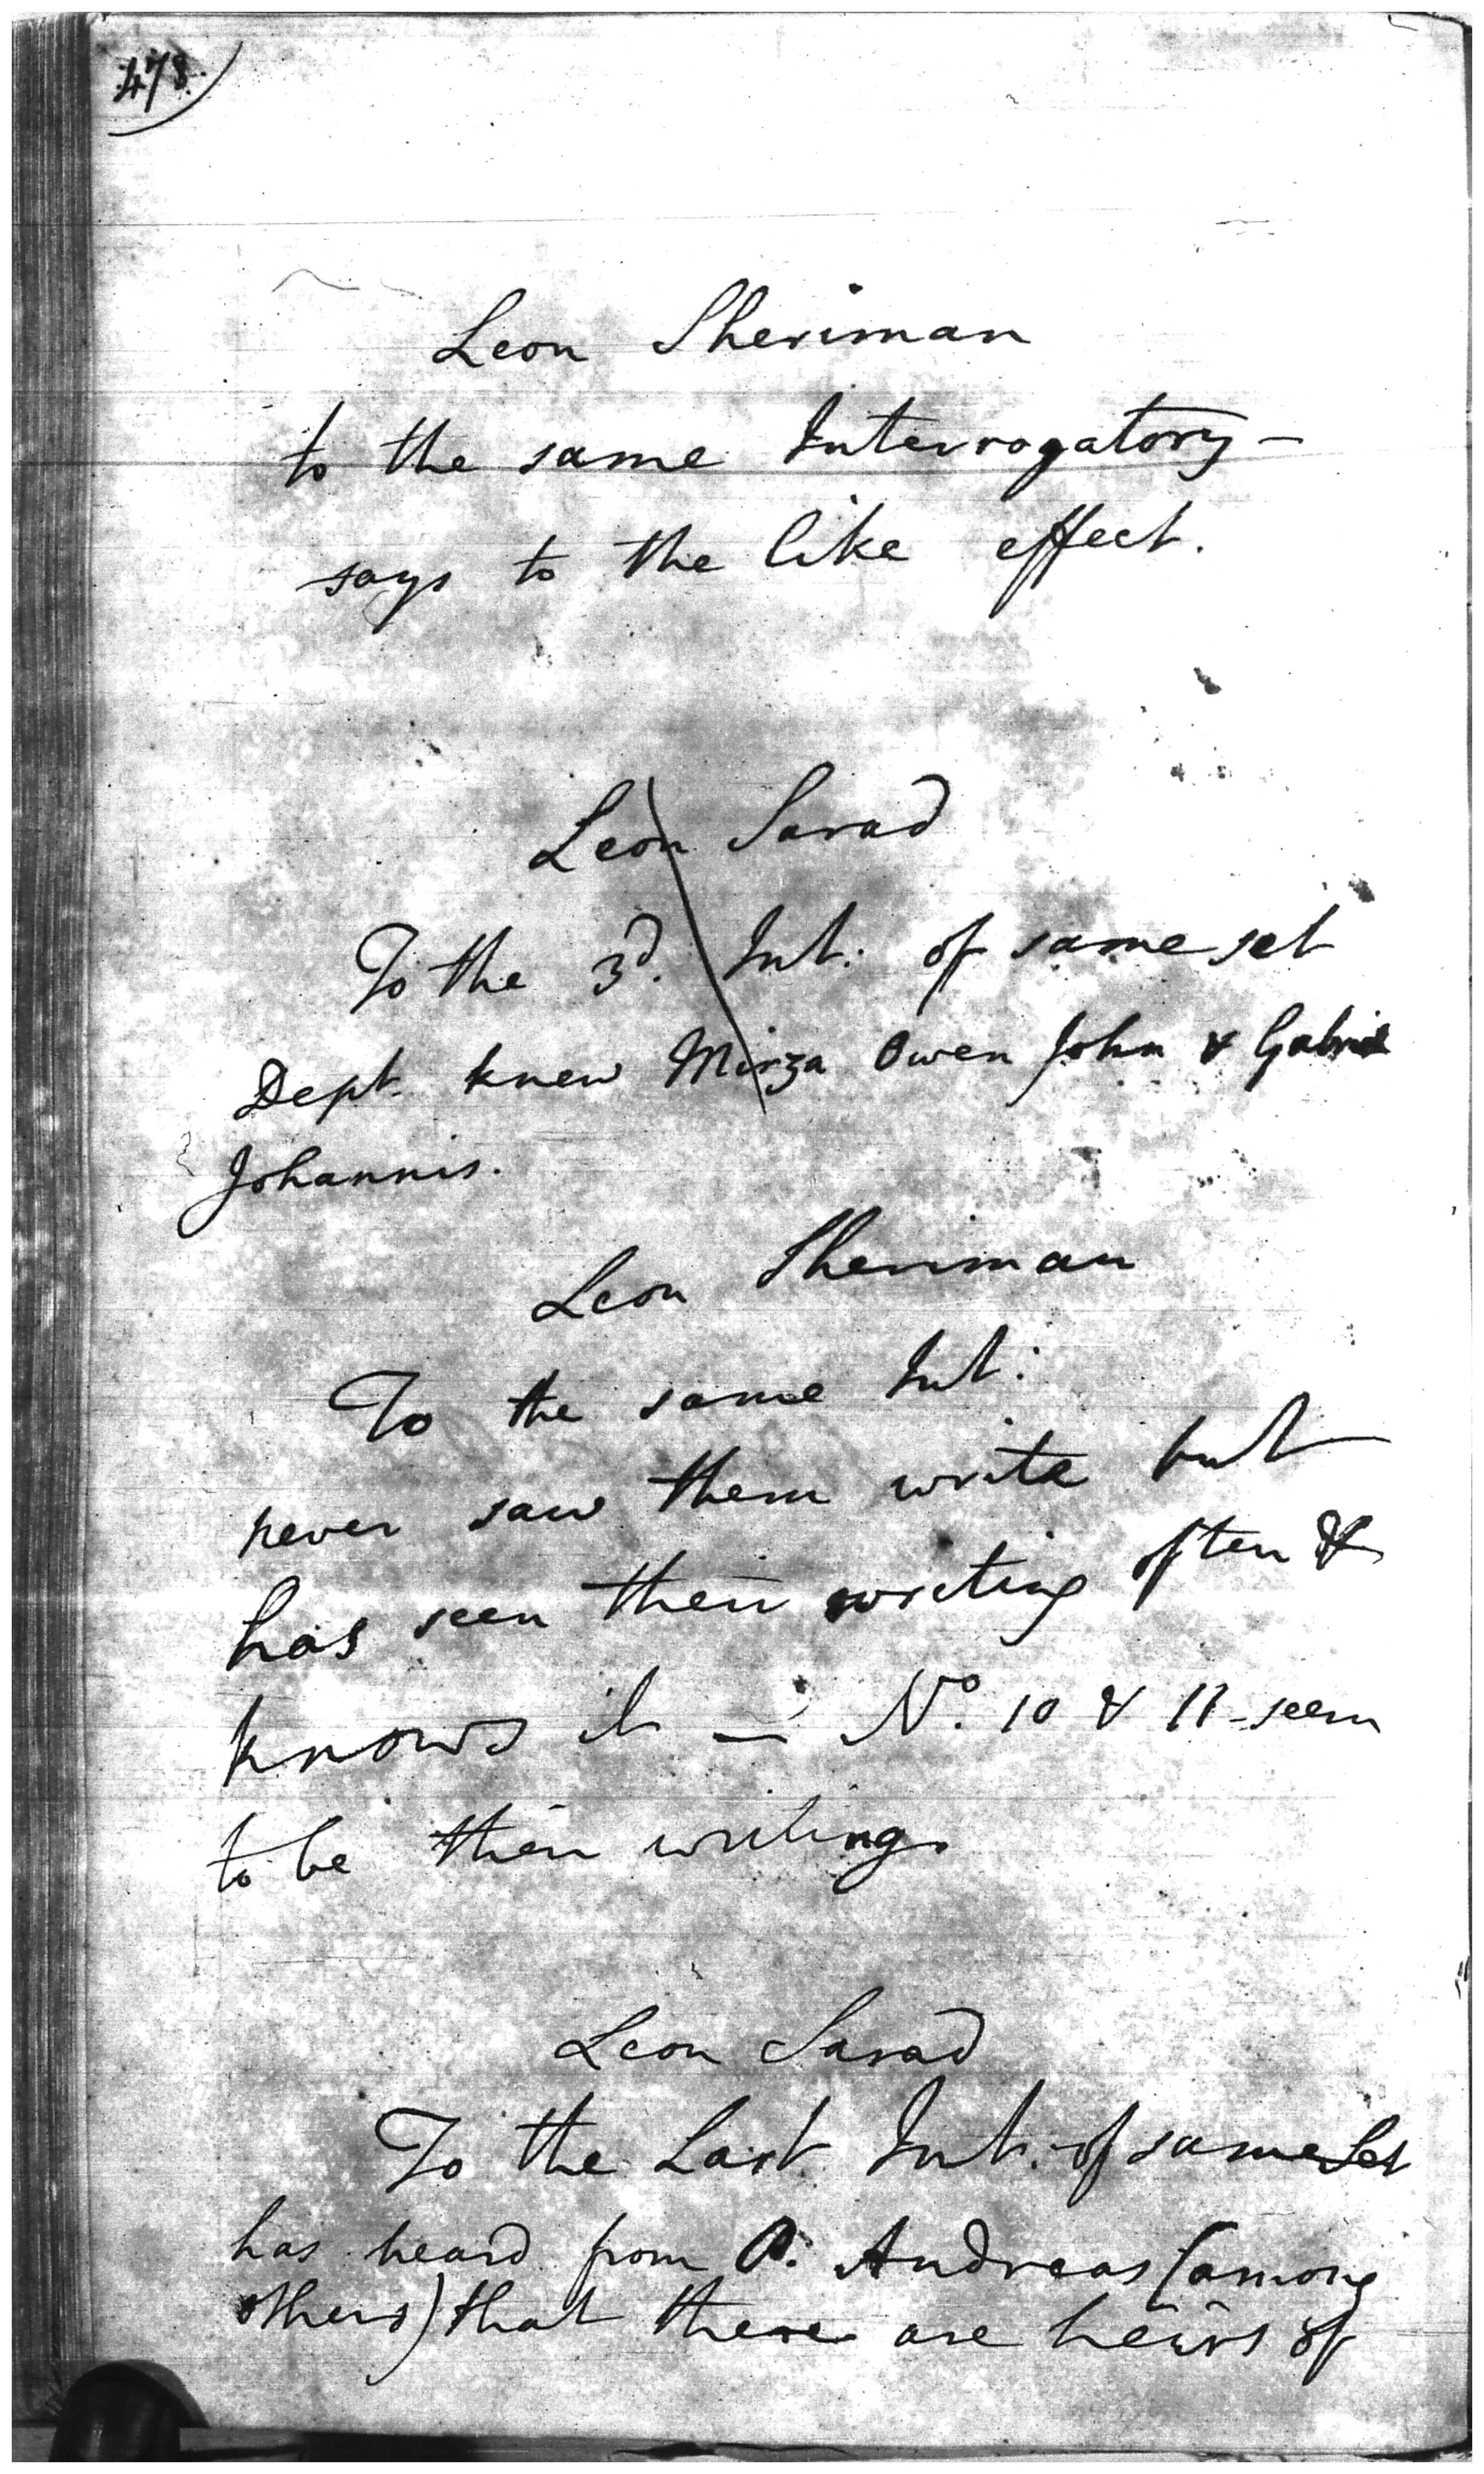 478.
Leon Sheriman
to the same Interrogatory -
says to the like effect.
Leon Sarad
To the 3d. Int: of same set
Dept. knew Mirza Owen John & Gabriel
Johannis.
Leon Sheriman
To the same Int:
never saw them write but
has seen their writing often &
knows it - No. 10 & 11 - seem
to be their writing.
Leon Sarad
To the Last Int: of same Set
has heard from P. Andreas (among
others) that there are heirs of